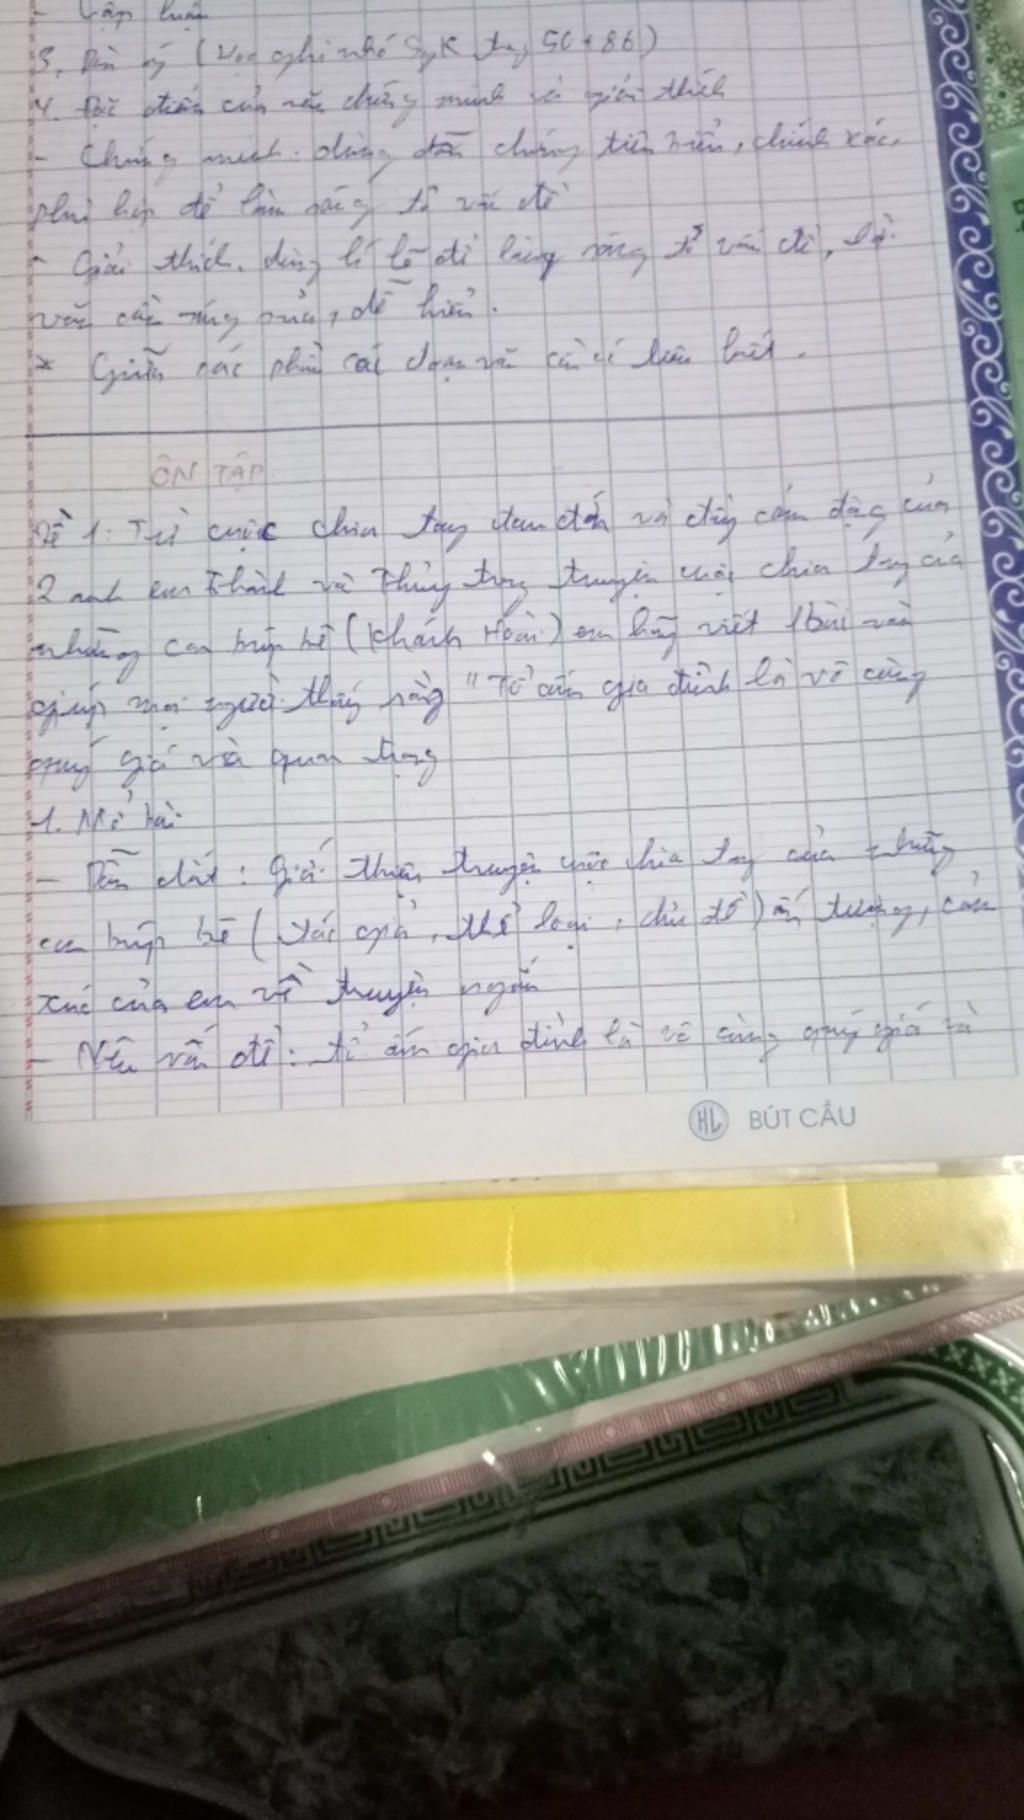 - Lập luận
3. Dàn ý (Học ghi nhớ SgK trang 50 + 86)
4. Đặc điểm của văn chứng minh và giải thích
- Chứng minh: dùng dẫn chứng tiêu biểu, chính xác,
phù hợp để làm sáng tỏ vấn đề
- Giải thích: dùng lí lẽ để làm sáng tỏ vấn đề, lời
văn cần sáng sủa, dễ hiểu.
* Giữa các phần các đoạn văn cần có liên kết.
ÔN TẬP
Đề 1: Từ cuộc chia tay đau đớn và đầy cảm động của
2 anh em Thành và Thủy trong truyện cuộc chia tay của
những con búp bê (Khánh Hoài) em hãy viết 1 bài văn
giúp mọi người thấy rằng "Tổ ấm gia đình là vô cùng
quý giá và quan trọng
1. Mở bài
- Dẫn dắt: Giới thiệu truyện cuộc chia tay của những
con búp bê (tác giả, thể loại, chủ đề) ấn tượng, cảm
xúc của em về truyện ngắn
- Nêu vấn đề: tổ ấm gia đình là vô cùng quý giá và
HL BÚT CẦU